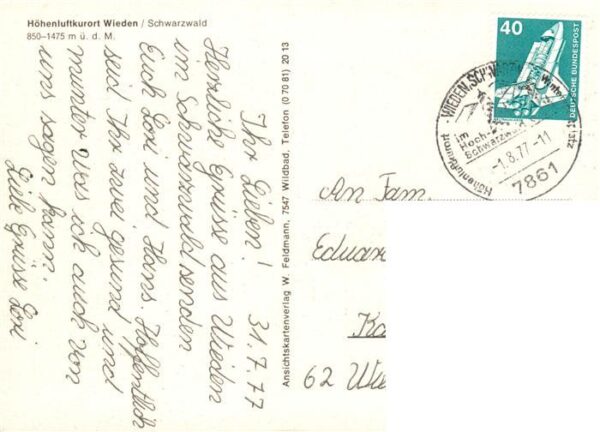 Höhenluftkurort Wieden / Schwarzwald
850–1475 m ü. d. M.
Ihr Lieben! 31.7.77
Herzliche Grüsse aus Wieden
im Schwarzwald senden
Euch Lori und Hans. Hoffentlich
seid Ihr zwei gesund und
munter was ich auch von
uns sagen kann.
Liebe Grüsse Lori
Ansichtskartenverlag W. Feldmann, 7547 Wildbad, Telefon (0 70 81) 20 13
40
DEUTSCHE BUNDESPOST
WIEDEN, SCHWARZW
im
Hoch-
Schwarzwa
Höhenluftkurort
-1.8.77-11
7861
An Fam.
Eduar
62 Wie